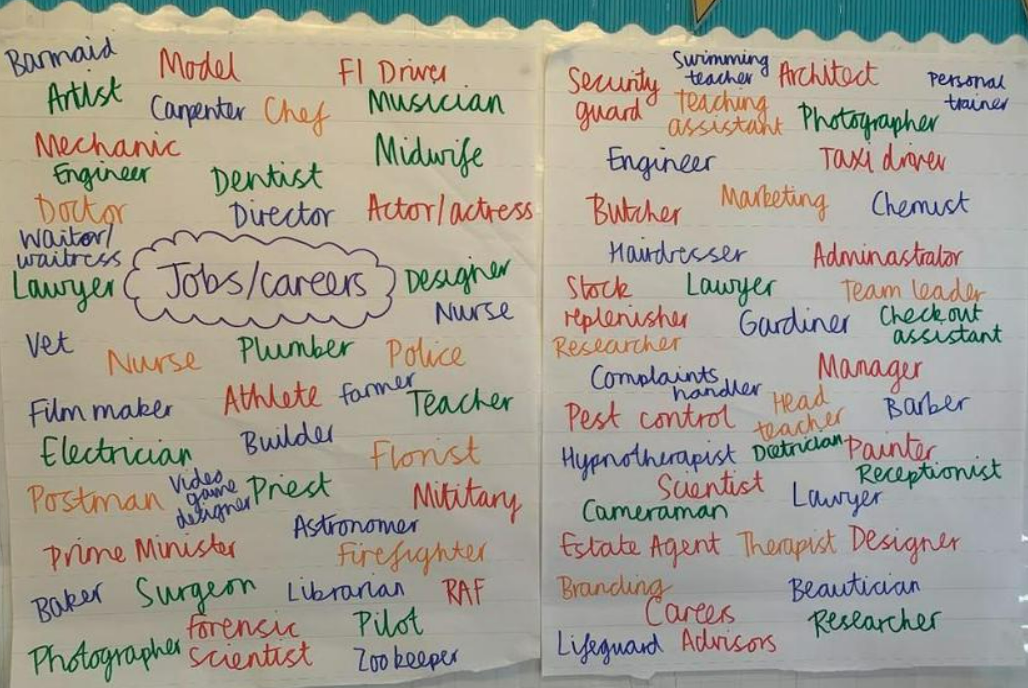 Barmaid Model F1 Driver
Artist Carpenter Chef Musician
Mechanic Midwife
Engineer Dentist
Doctor Director Actor/actress
Waitor/
waitress
Lawyer Jobs/careers Designer
Nurse
Vet Nurse Plumber Police
Film maker Athlete farmer Teacher
Electrician Builder Florist
Postman Video
game
designer Priest Mititary
Astronomer
Prime Minister Firefighter
Baker Surgeon Librarian RAF
Photographer forensic
scientist Pilot
Zookeeper
Security
guard Swimming
teacher Architect Personal
trainer
teaching
assistant Photographer
Engineer Taxi driver
Butcher Marketing Chemist
Hairdresser Adminastrator
Stock
replenisher Lawyer Team leader
Gardiner Checkout
assistant
Researcher
Complaints
handler Manager
Pest control Head
teacher Barber
Hypnotherapist Painter
Receptionist
Scientist Lawyer
Cameraman
Estate Agent Therapist Designer
Branding Beautician
Careers
Advisors Researcher
Lifeguard